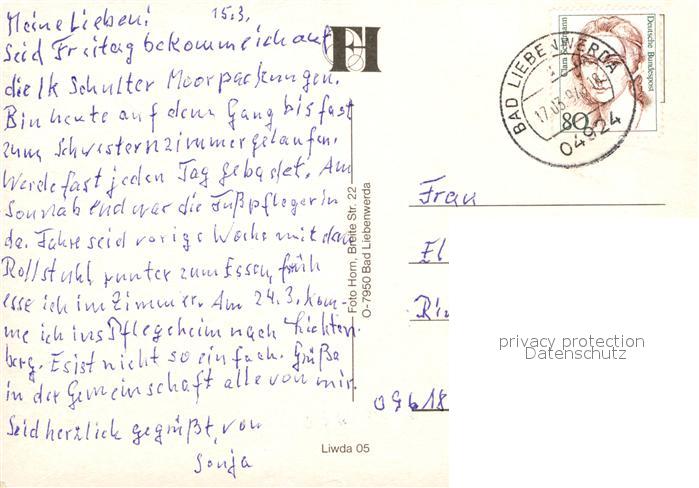 Meine Lieben! 15.3.
Seid Freitag bekomme ich auf
die lk Schulter Moorpackungen.
Bin heute auf dem Gang bis fast
zum Schwesternzimmer gelaufen.
Werde fast jeden Tag gebadet. Am
Sonnabend war die Fußpflegerin
da. Fahre seid vorige Woche mit dem
Rollstuhl runter zum Essen, früh
esse ich im Zimmer. Am 24.3. kom-
me ich ins Pflegeheim nach Lichten
berg. Es ist nicht so einfach. Grüße
in der Gemeinschaft alle von mir.
Seid herzlich gegrüßt, von
Sonja
FH
Foto Horn, Breite Str. 22
O-7950 Bad Liebenwerda
Liwda 05
Deutsche Bundespost
Clara Schumann
80
BAD LIEBENWERDA
04924
Frau
El
Rin
09618
privacy protection
Datenschutz